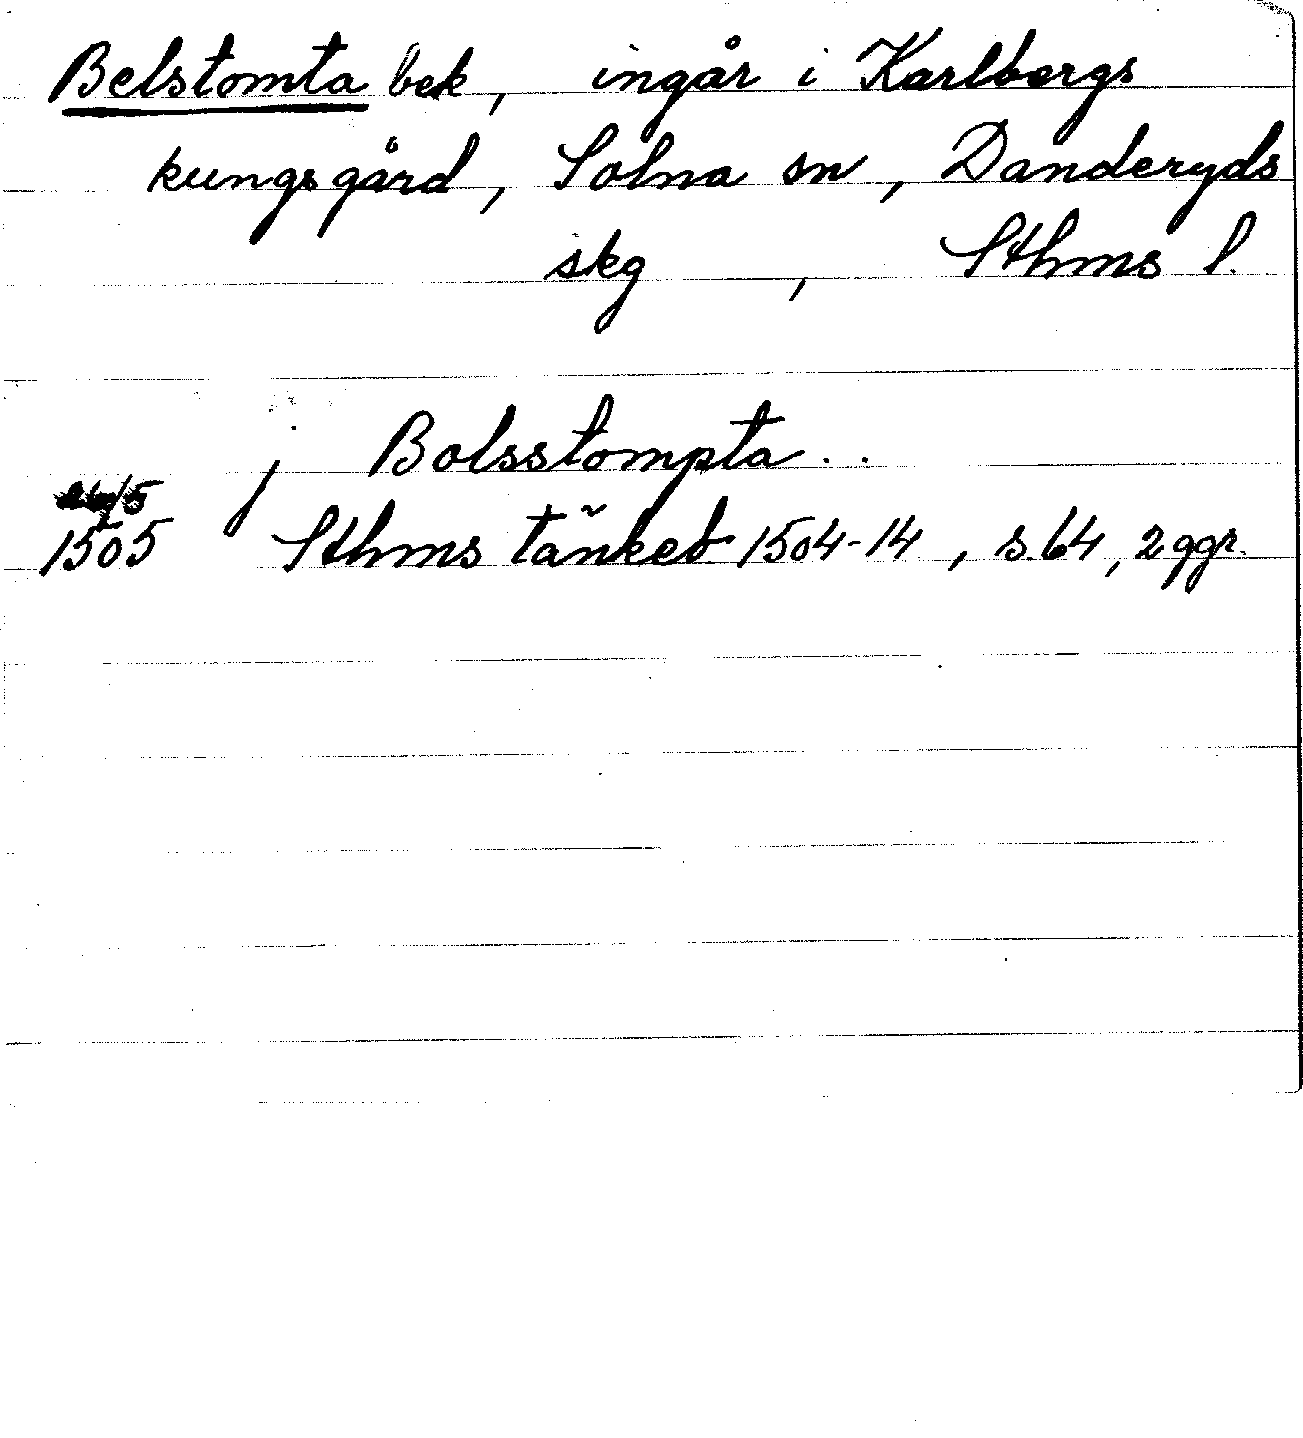 Belstomta bek, ingår i Karlbergs
kungsgård, Solna sn, Danderyds
skg, Sthms l.
j Bolsstompta..
26/5
1505 Sthms tänkeb 1504-14, s. 64, 2 ggr.